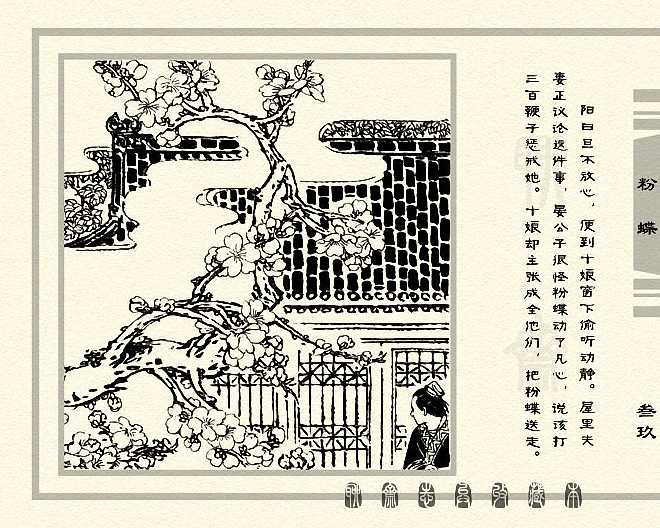 阳曰旦不放心，便到十娘窗下偷听动静。屋里夫
妻正议论这件事，晏公子很怪粉蝶动了凡心，说该打
三百鞭子惩戒她。十娘却主张成全他们，把粉蝶送走。
粉蝶
叁玖
聊斋志异收藏本